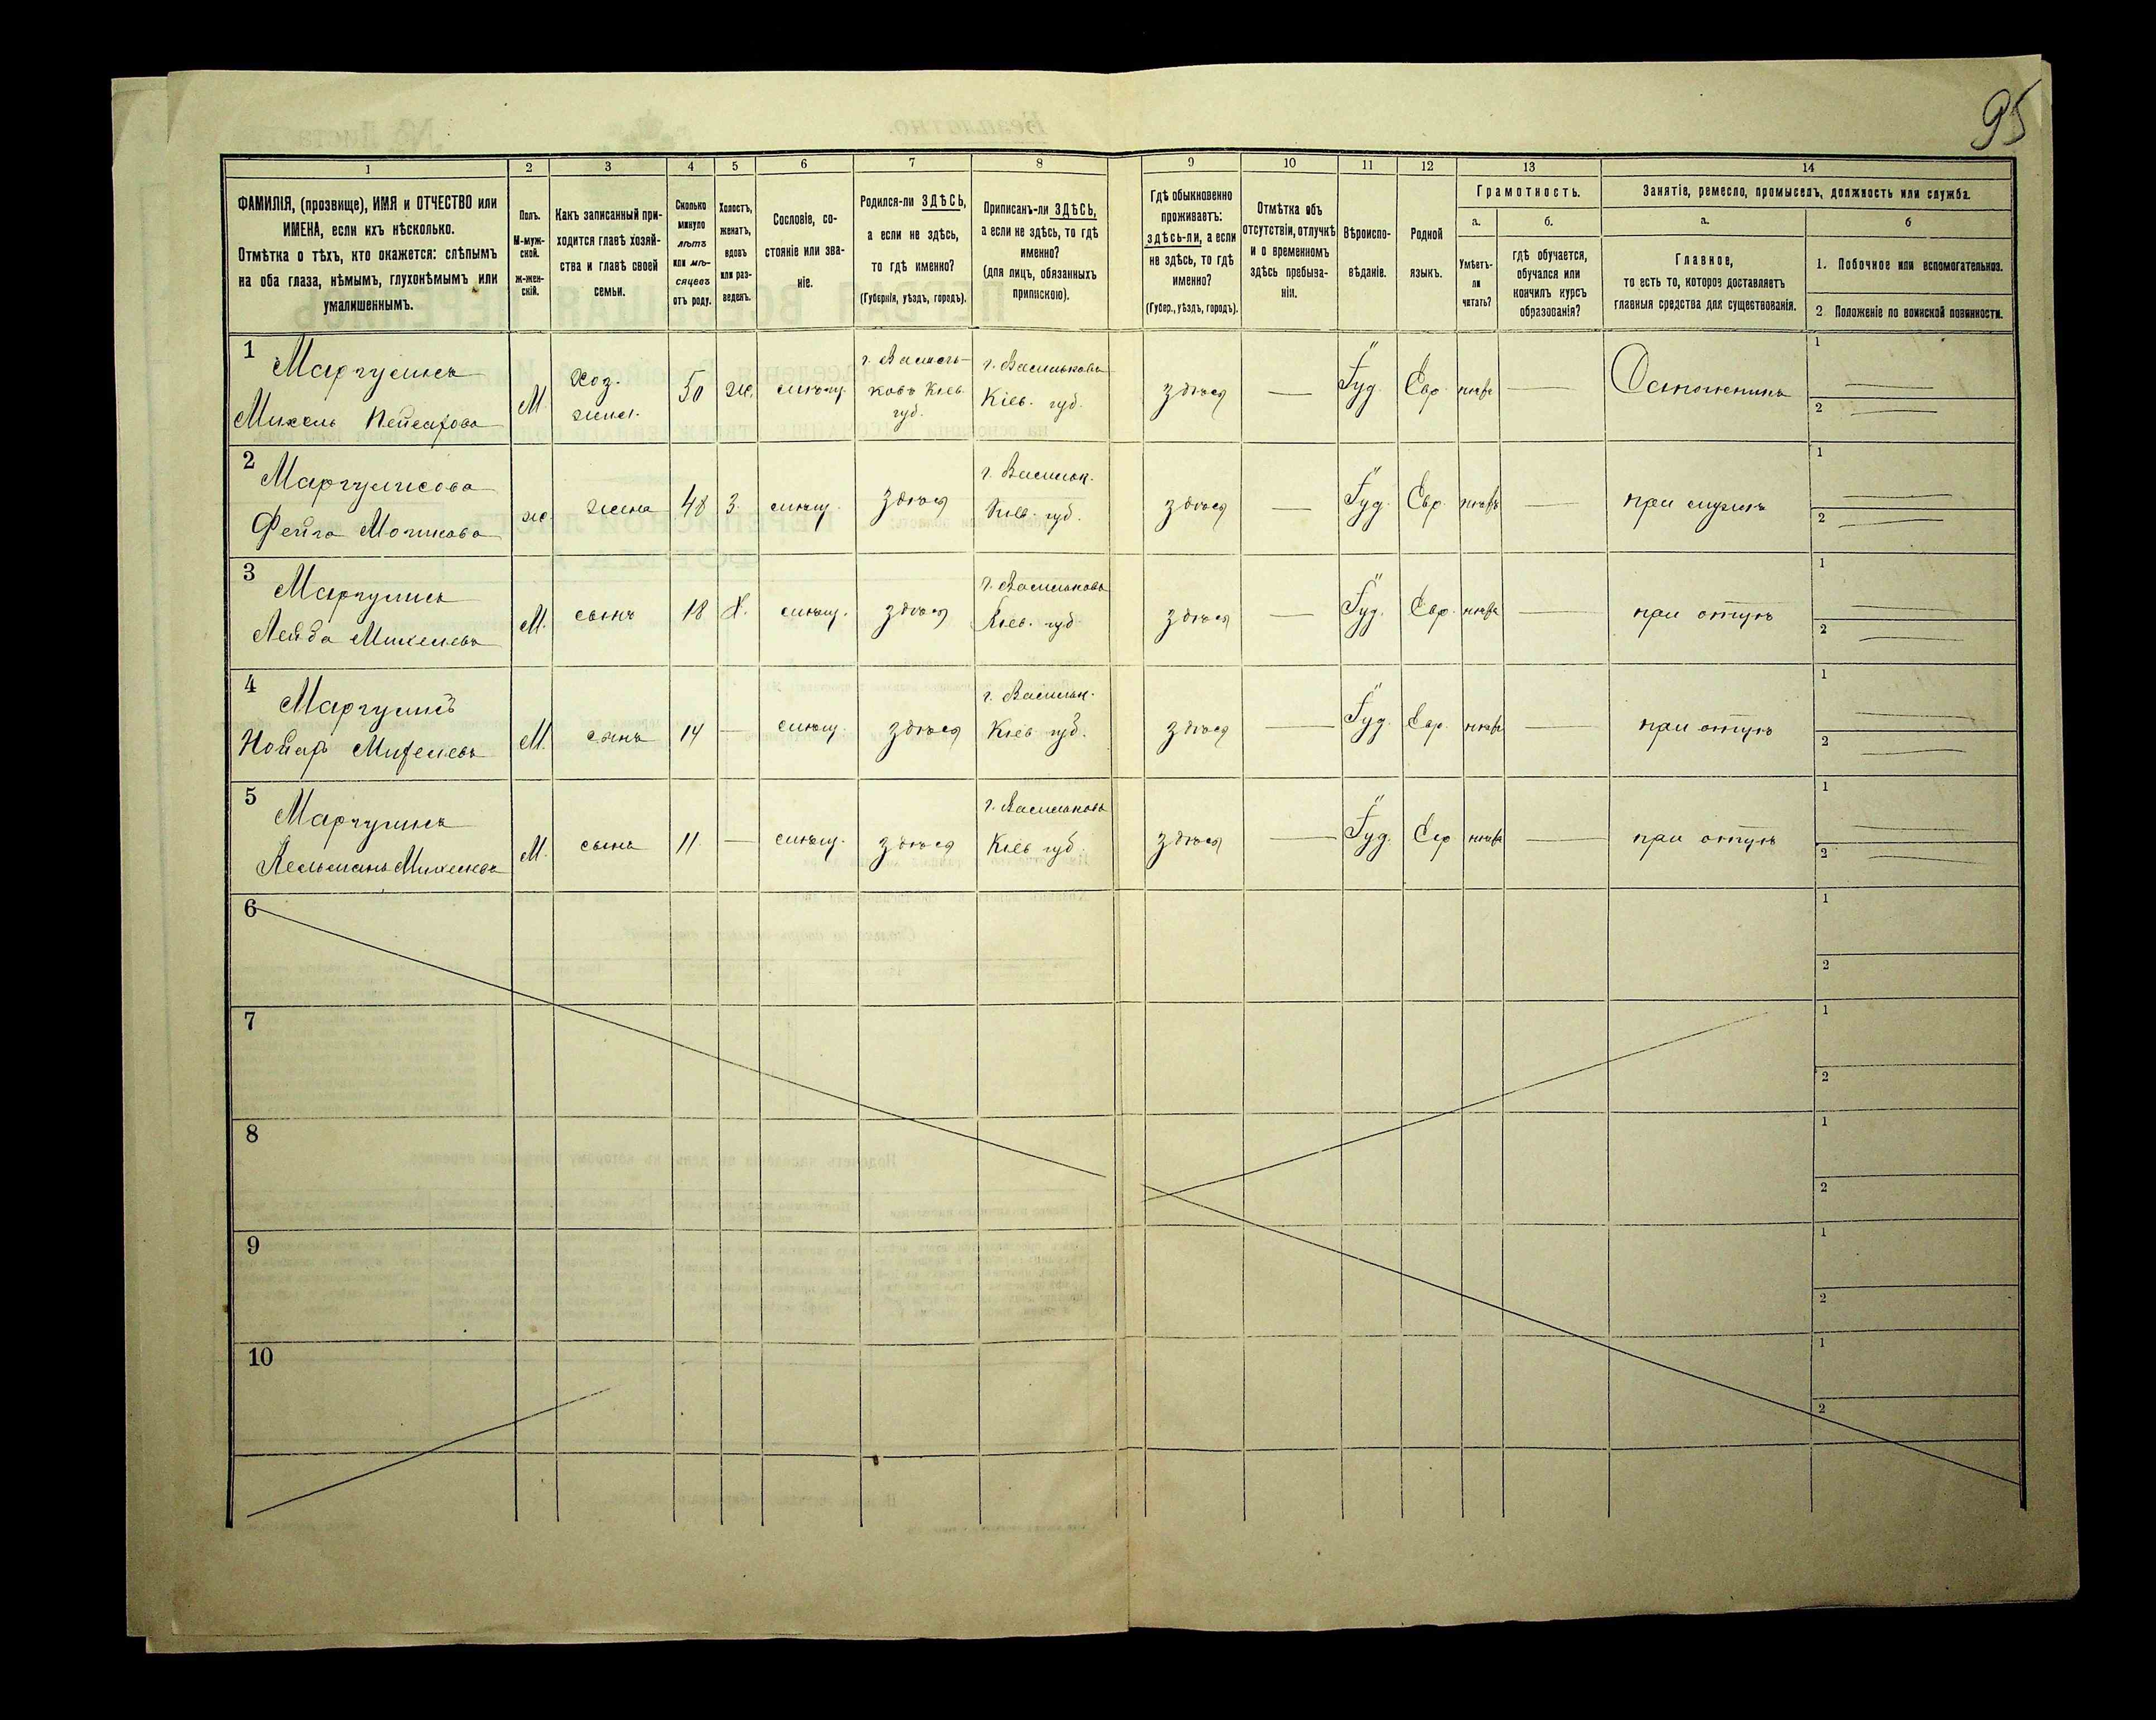 95
1
2
3
4
5
6
7
8
9
10
11
12
13
14
ФАМИЛІЯ, (прозвище), ИМЯ и ОТЧЕСТВО или
ИМЕНА, если ихъ нѣсколько.
Отмѣтка о тѣхъ, кто окажется: слѣпымъ
на оба глаза, нѣмымъ, глухонѣмымъ или
умалишеннымъ.
Полъ.
М-муж-
ской.
ж-жен-
скій.
Какъ записанный при-
ходится главѣ хозяй-
ства и главѣ своей
семьи.
Сколько
минуло
лѣтъ
или мѣ-
сяцевъ
отъ роду.
Холостъ,
женатъ,
вдовъ
или раз-
веденъ.
Сословіе, со-
стояніе или зва-
ніе.
Родился-ли ЗДѢСЬ,
а если не здѣсь,
то гдѣ именно?
(Губернія, уѣздъ, городъ).
Приписанъ-ли ЗДѢСЬ,
а если не здѣсь, то гдѣ
именно?
(для лицъ, обязанныхъ
припискою).
Гдѣ обыкновенно
проживаетъ:
здѣсь-ли, а если
не здѣсь, то гдѣ
именно?
(Губер., уѣздъ, городъ).
Отмѣтка объ
отсутствіи, отлучкѣ
и о временномъ
здѣсь пребыва-
ніи.
Вѣроиспо-
вѣданіе.
Родной
языкъ.
Грамотность.
а.
б.
Умѣетъ-
ли
читать?
гдѣ обучается,
обучался или
кончилъ курсъ
образованія?
Занятіе, ремесло, промыселъ, должность или служба.
а.
б
Главное,
то есть то, которое доставляетъ
главныя средства для существованія.
1. Побочное или вспомогательное.
2 Положеніе по воинской повинности.
1
Маргулисъ
Михель
М
Хоз.
50
ж.
г. Василь-
ковъ Кіев.
губ.
г. Васильковъ
Кіев. губ.
здѣсь
Іуд.
Евр
1
2
2
Маргулисова
Фейга
ж
жена
48
З.
здѣсь
г. Васильк.
Кіев. губ.
здѣсь
Іуд.
Евр.
при мужѣ
1
2
3
Маргулисъ
Лейба Михелевъ
М.
сынъ
18
Х.
здѣсь
г. Васильковъ
Кіев. губ
здѣсь
Іуд.
Евр.
при отцѣ
1
2
4
Маргулисъ
Михелевъ
М.
сынъ
14
здѣсь
г. Васильк.
Кіев губ.
здѣсь
Іуд.
Евр.
при отцѣ
1
2
5
Маргулисъ
Михелевъ
М.
сынъ
11.
здѣсь
г. Васильковъ
Кіев губ.
здѣсь
Іуд.
Евр
при отцѣ
1
2
6
1
2
7
1
2
8
1
2
9
1
2
10
1
2